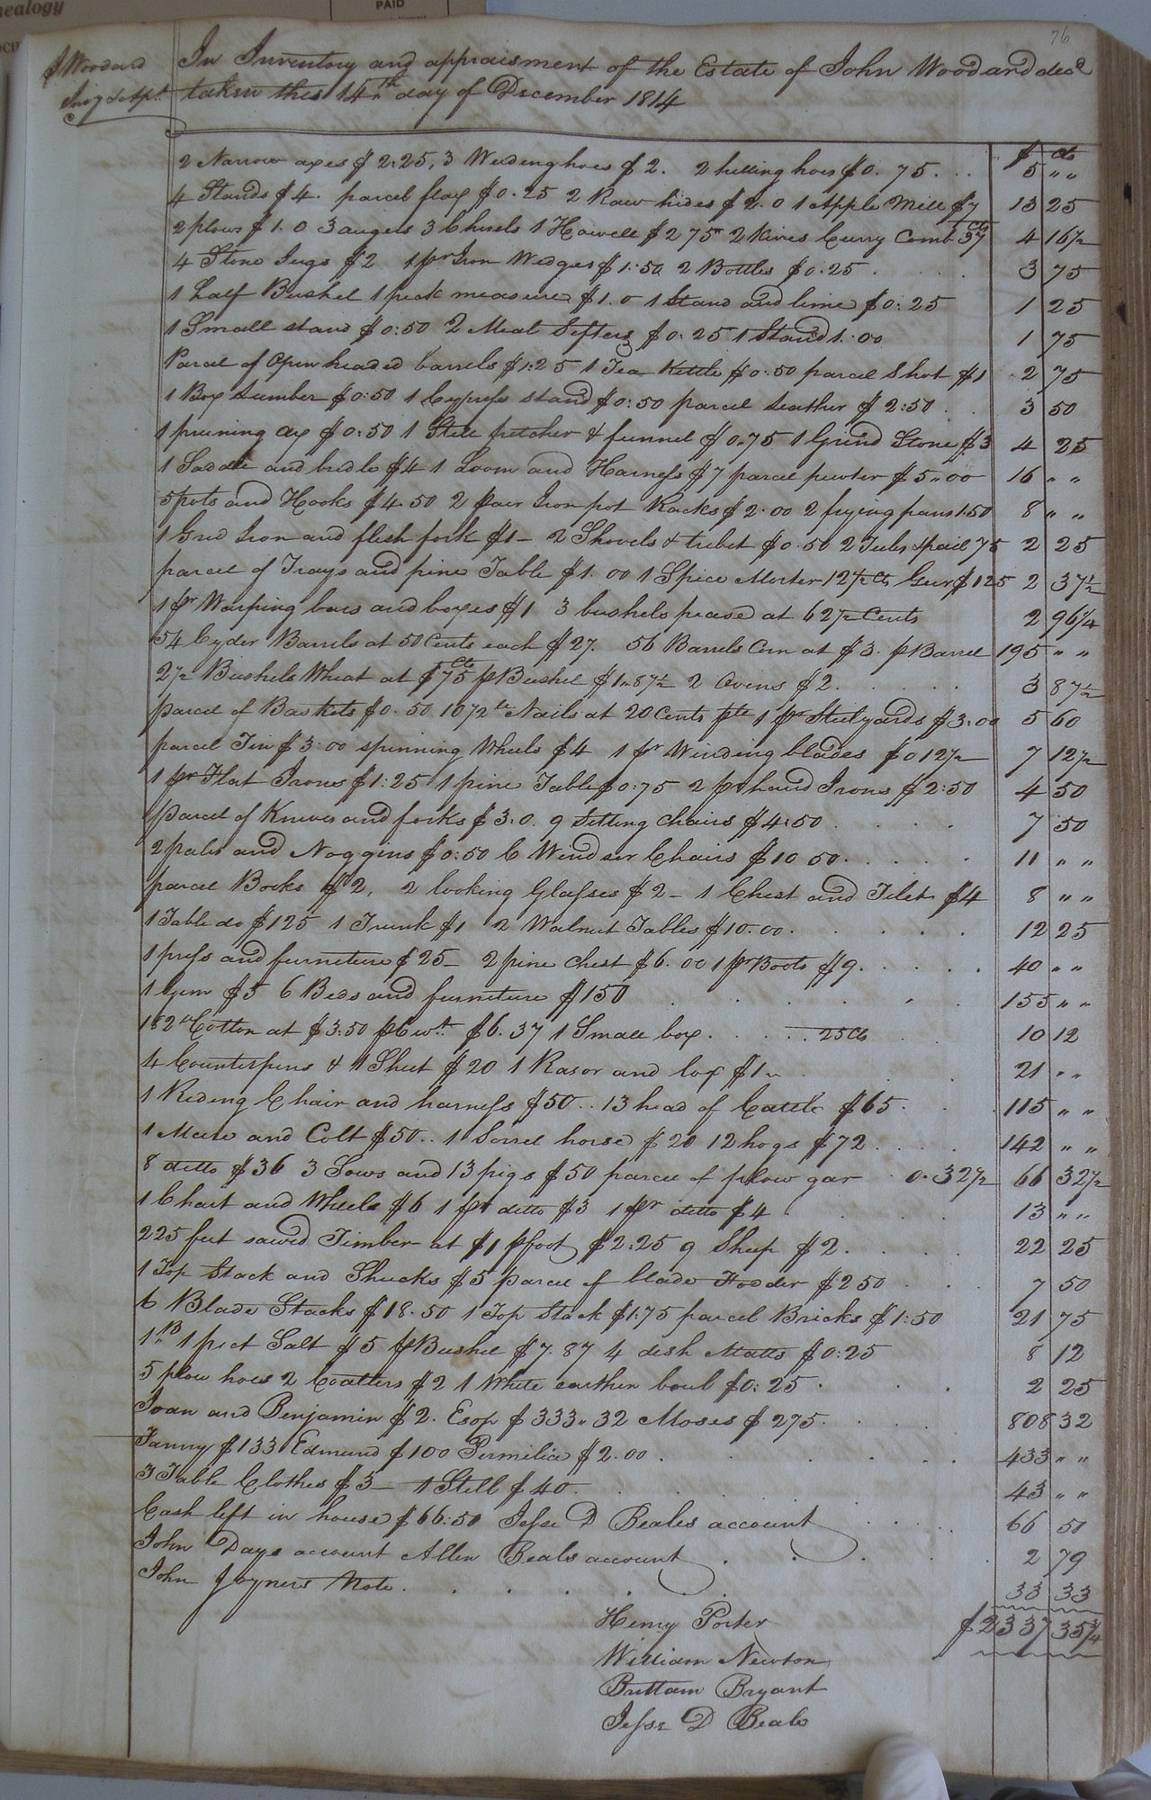 nealogy
PAID
76
J Woodard
Invy & Appt
In Inventory and appraisment of the Estate of John Woodard decd
taken this 14th day of December 1814
$ cts
2 Narrow axes $2:25, 3 Weeding hoes $2. 2 hilling hoes $0.75... 5 " "
4 Stands $4. parcel flax $0.25 2 Raw hides $2.0 1 Apple Mill $7 13 25
2 plows $1.0 3 augers 3 Chisels 1 Howell $2 75 2 Kives Curry Comb 37 cts 4 16½
4 Stone Jugs $2 1 pr Iron Wedges $1:50 2 Bottles $0.25 3 75
1 half Bushel 1 peck measure $1.0 1 Stand and lime $0:25 1 25
1 Small stand $0:50 2 Meal Sifters $0.25 1 Stand 1.00 1 75
Parcel of Open headed barrels $1:25 1 Tea Kettle $0.50 parcel Shot $1 2 75
1 Box Lumber $0:50 1 Cypress stand $0:50 parcel Leather $2:50 3 50
1 pruning ax $0:50 1 Still pitcher & funnel $0.75 1 Grind Stone $3 4 25
1 Saddle and bridle $4 1 Loom and Harness $7 parcel pewter $5"00 16 " "
5 pots and Hooks $4.50 2 pair Iron pot Racks $2.00 2 frying pans 1.50 8 " "
1 Grid Iron and flesh fork $1– 2 Shovels & tribet $0.50 2 Tubs & pail 75 2 25
parcel of Trays and pine Table $1.00 1 Spice Morter 12½ cts Geer $1 25 2 37½
1 pr Warping bars and boxes $1 3 bushels pease at 62½ Cents 2 96¼
54 Cyder Barrels at 50 Cents each $27. 56 Barrels Corn at $3. p Barrel 195 " "
2½ Bushels Wheat at $75 cts p Bushel $1"87½ 2 Ovens $2. 3 87½
parcel of Baskets $0.50 10½ lb Nails at 20 Cents p lb 1 pr Steelyards $3:00 5 60
parcel Tin $3:00 spinning Wheels $4 1 pr Winding blades $0 12½ 7 12½
1 pr Flat Irons $1:25 1 pine Table $0:75 2 pr hand Irons $2:50 4 50
parcel of Knives and forks $3.0. 9 Setting Chairs $4:50 7 50
2 pales and Noggins $0:50 6 Windser Chairs $10 50. 11 " "
parcel Books $2, 2 looking Glasses $2– 1 Chest and Tilet $4 8 " "
1 Table do $1 25 1 Trunk $1 2 Walnut Tables $10.00. 12 25
1 press and furneture $25– 2 pine Chest $6.00 1 pr Boots $9. 40 " "
1 Gun $5 6 Beds and furneture $150 155 " "
182 lb Cotton at $3:50 p Cwt. $6.37 1 Small box. 25 Cts 10 12
4 Counterpins & 1 Sheet $20 1 Rasor and box $1" 21 " "
1 Rideng Chair and harness $50.. 13 head of Cattle $65. 115 " "
1 Mare and Colt $50.. 1 Sorrel horse $20 12 hogs $72 142 " "
8 ditto $36 3 Sows and 13 pigs $50 parcel of plow gar 0.32½ 66 32½
1 Chart and Wheels $6 1 pr ditto $3 1 pr ditto $4 13 " "
225 feet sawed Timber at $1 p foot $2:25 9 Sheep $2. 22 25
1 Top Stack and Shucks $5 parcel of blade Fodder $2 50 7 50
6 Blade Stacks $18.50 1 Top Stack $1:75 parcel Bricks $1:50 21 75
1 1 pect Salt $5 p Bushel $7.87 4 desh Matts $0:25 8 12
5 plow hoes 2 Coalters $2 1 White earthen boul $0:25. 2 25
Ivan and Benjamin $2. Esop $333"32 Moses $275. 808 32
Fanny $133 Edmund $100 Permilia $2.00. 433 " "
3 Table Clothes $3– 1 Still $40. 43 " "
Cash left in house $66:50 Jesse D Beales account 66 50
John Days account Allen Beals account 2 79
John Joyners Note. 33 33
$2337 35¾
Henry Porter
William Newton
Brittain Bryant
Jesse D Beals